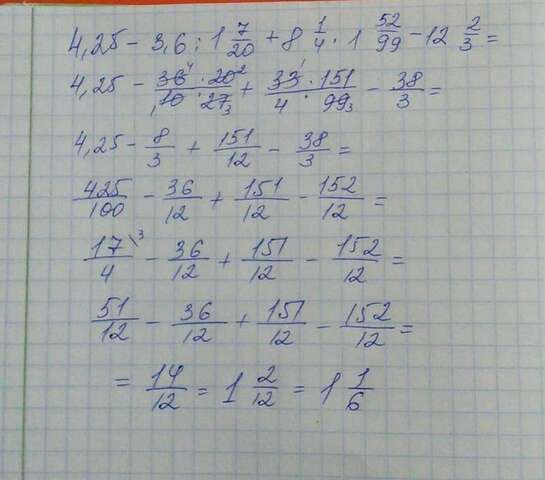 4,25 - 3,6 : 1 7/20 + 8 1/4 · 1 52/99 - 12 2/3 =
4,25 - 36⁴ · 20²/₁10 · 27₃ + 33¹ · 151/4 · 99₃ - 38/3 =
4,25 - 8/3 + 151/12 - 38/3 =
425/100 - 36/12 + 151/12 - 152/12 =
17/4 \³ - 36/12 + 151/12 - 152/12 =
51/12 - 36/12 + 151/12 - 152/12 =
= 14/12 = 1 2/12 = 1 1/6